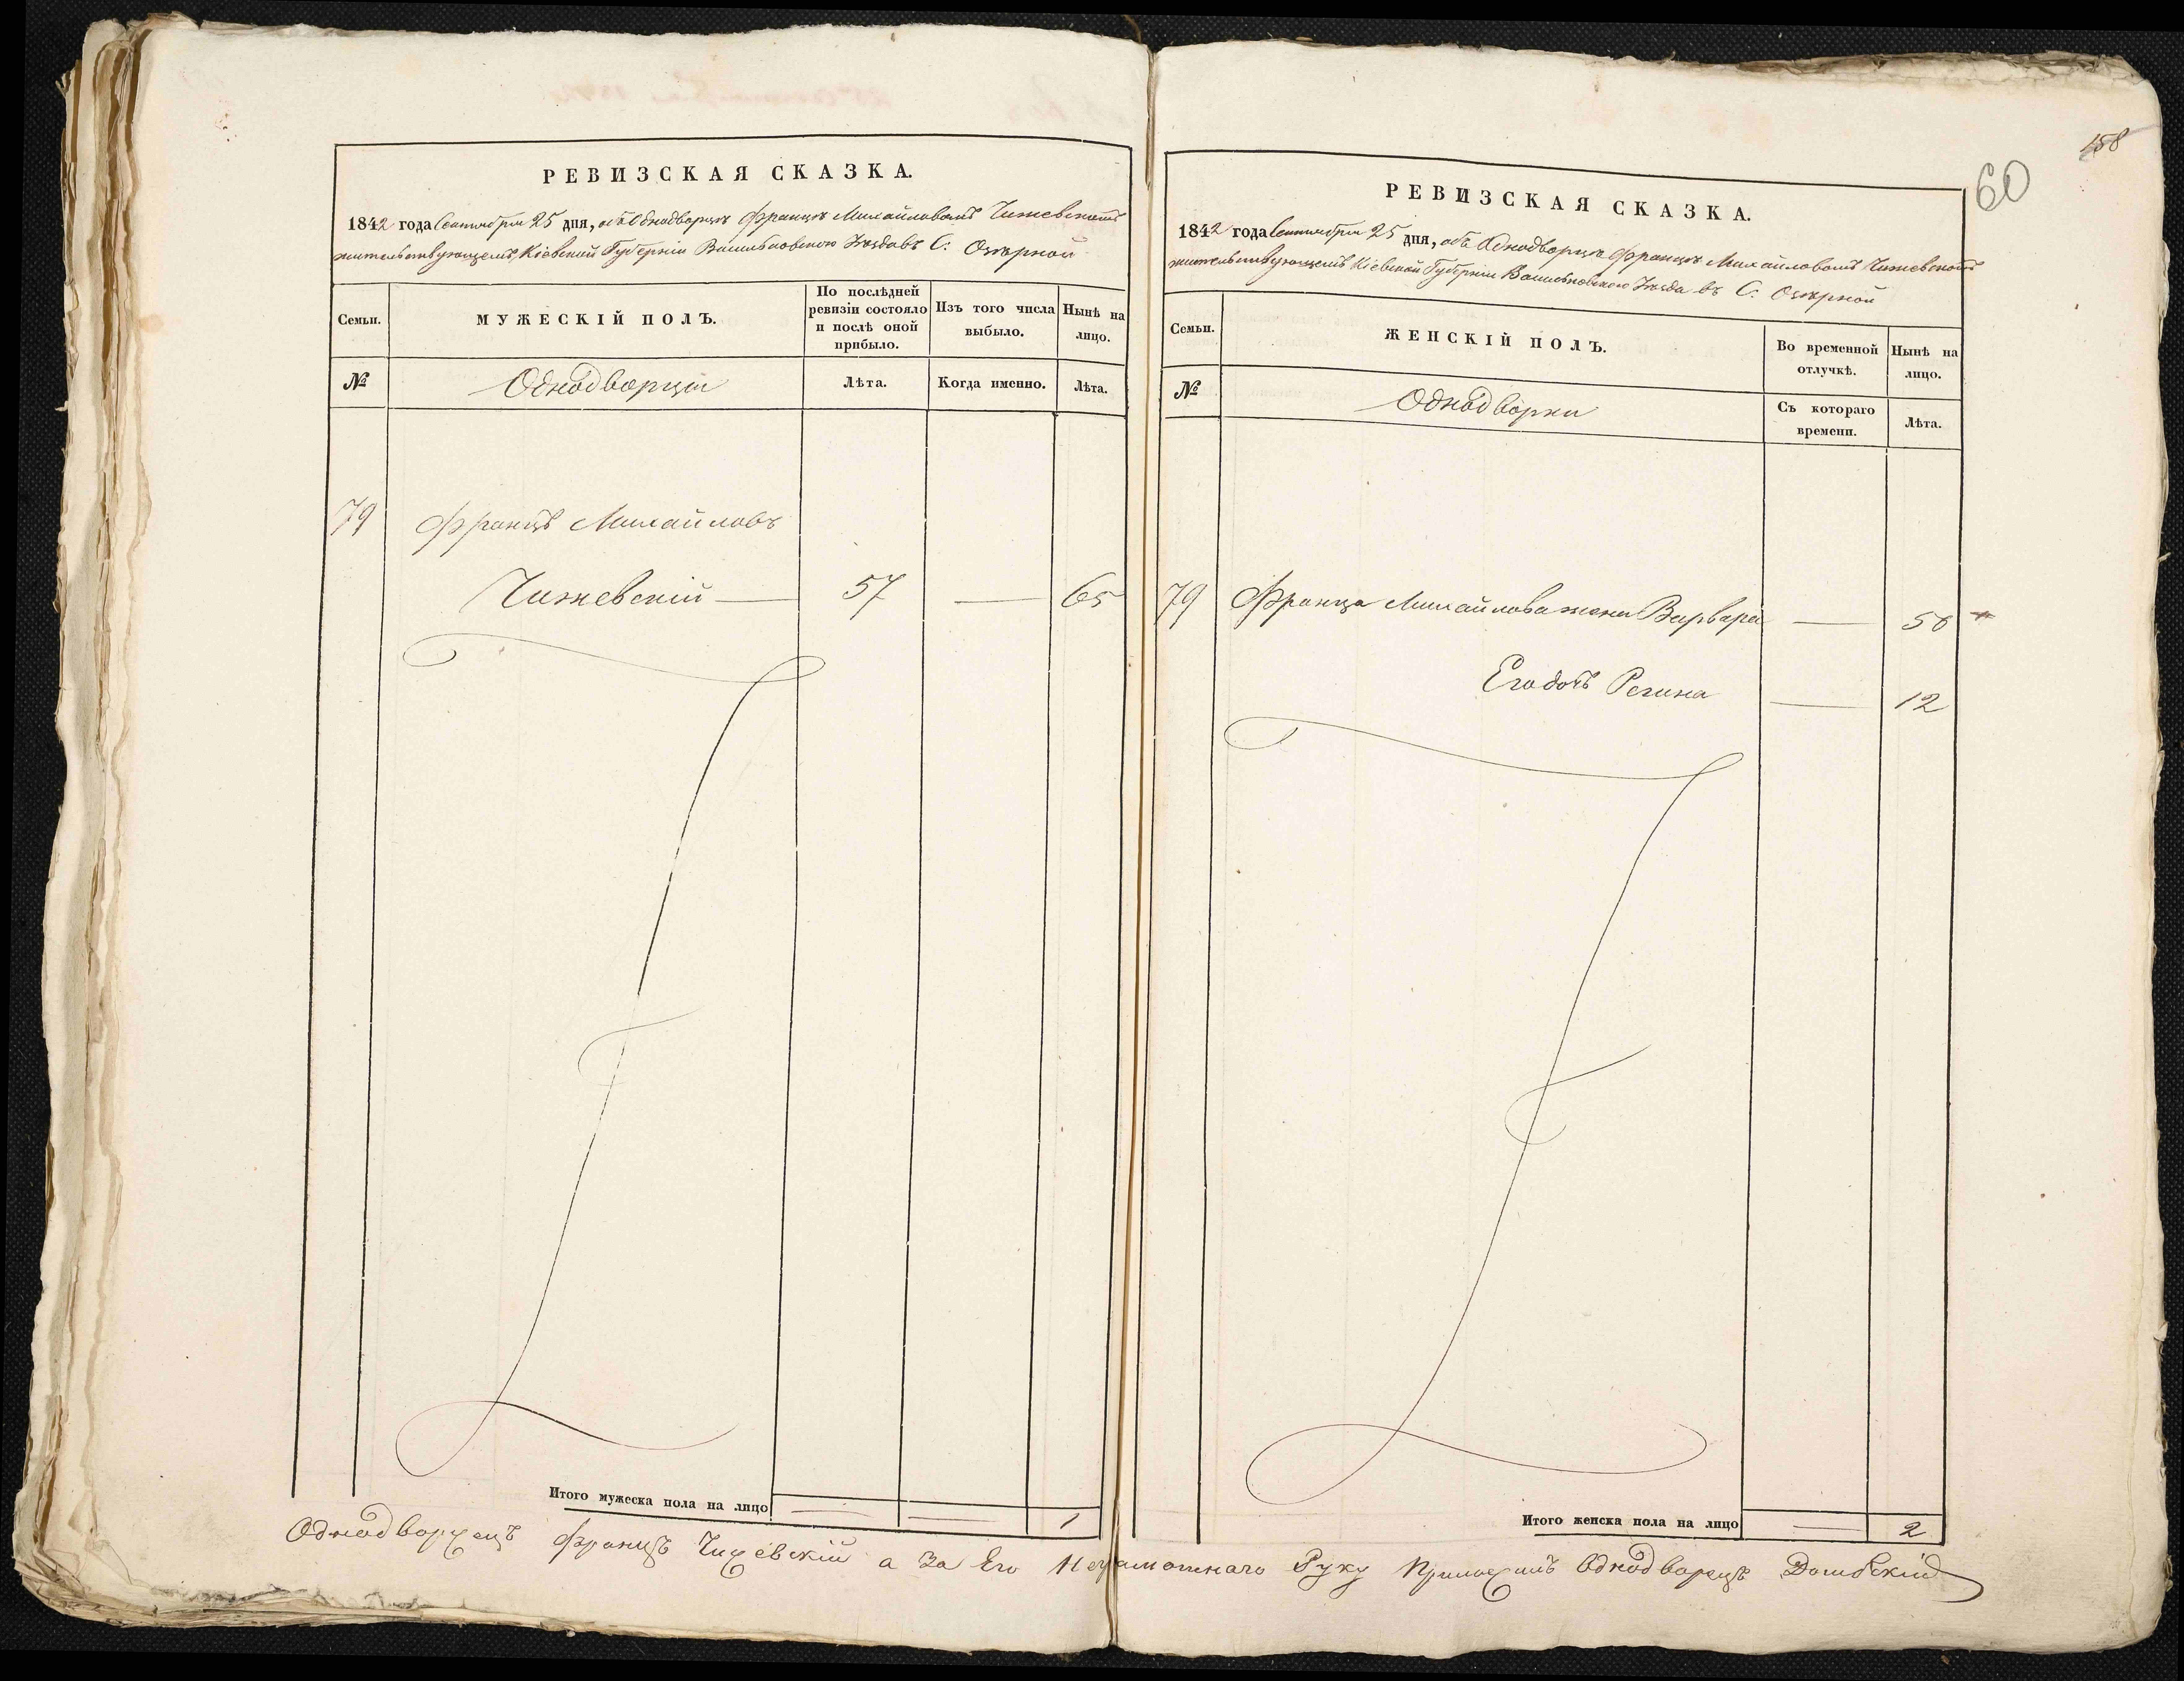 РЕВИЗСКАЯ СКАЗКА.
1842 года Сентября 25 дня, объ Однодворцѣ Францѣ Михайловомъ Чижевскомъ
жительствующемъ Кіевской Губерніи Васильковского Уѣзда въ С: Озѣрной
Семьи.
МУЖЕСКІЙ ПОЛЪ.
По послѣдней
ревизіи состояло
и послѣ оной
прибыло.
Изъ того числа
выбыло.
Нынѣ на
лицо.
№
Однодворцы
Лѣта.
Когда именно.
Лѣта.
79 Францъ Михайловъ
Чижевскій — 57 — 65
Итого мужеска пола на лицо 1
158
60
РЕВИЗСКАЯ СКАЗКА.
1842 года Сентября 25 дня, объ Однодворцѣ Францѣ Михайловомъ Чижевскомъ
жительствующемъ Кіевской Губерніи Васильковского Уѣзда въ С: Озѣрной
Семьи.
ЖЕНСКІЙ ПОЛЪ.
Во временной
отлучкѣ.
Нынѣ на
лицо.
№
Однодворки
Съ котораго
времени.
Лѣта.
79 Франца Михайлова жена Варвара — 56
Его дочь Регина — 12
Итого женска пола на лицо 2
Однодворецъ Францъ Чижевскій а За Его Неграмотнаго Руку Приложилъ Однодворецъ